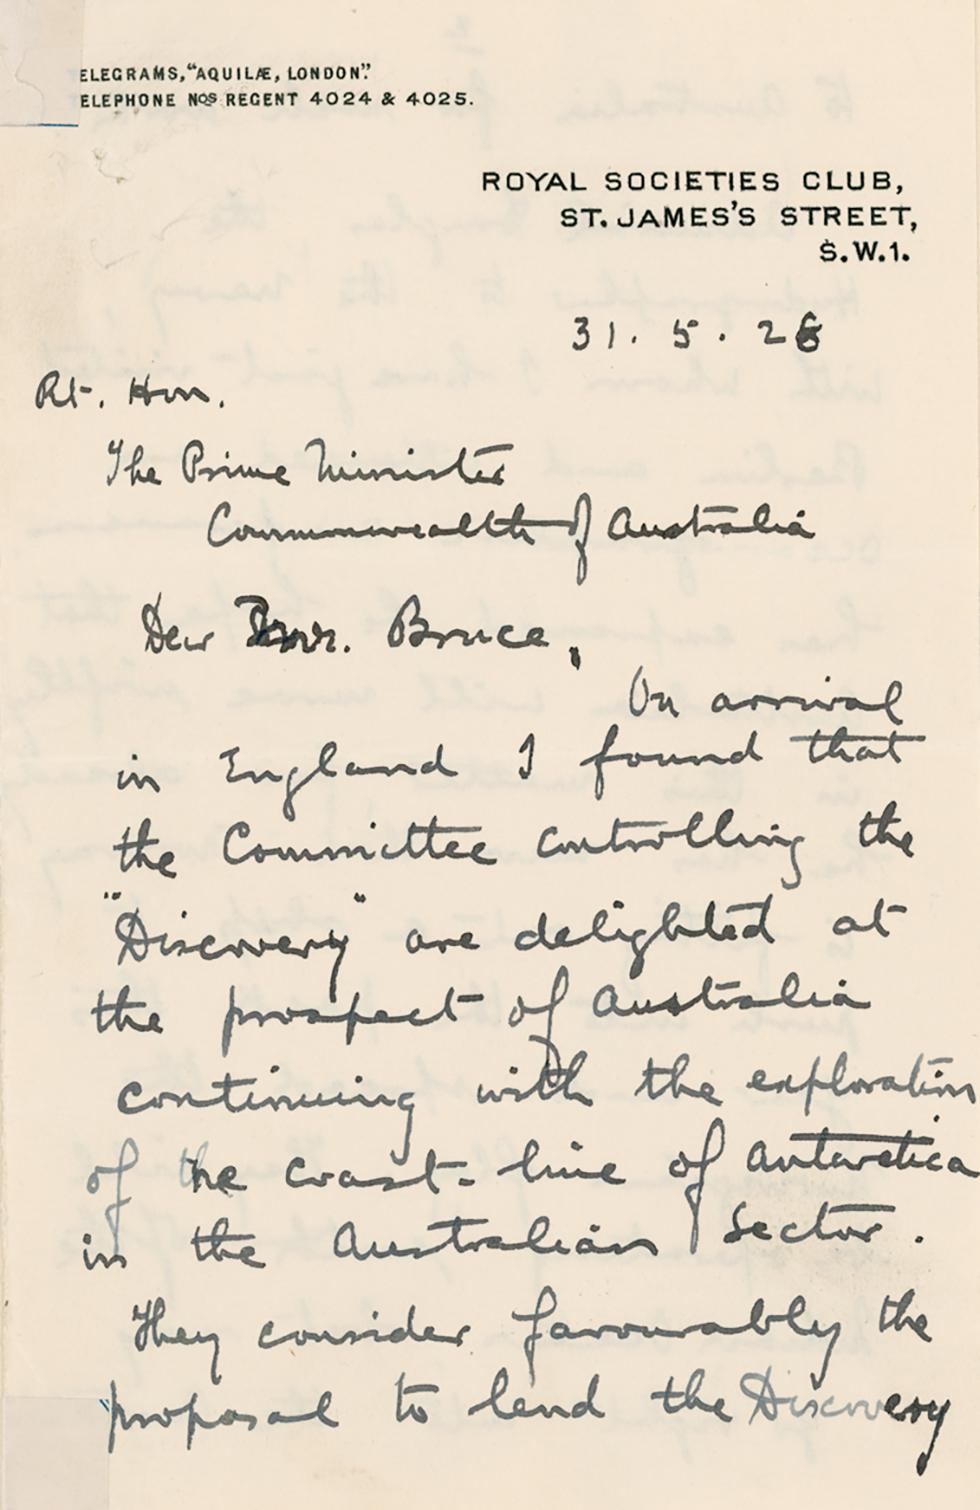 ELEGRAMS, "AQUILÆ, LONDON".
ELEPHONE NOS REGENT 4024 & 4025.
ROYAL SOCIETIES CLUB,
ST. JAMES'S STREET,
S.W.1.
31. 5. 26
Rt. Hon.
The Prime Minister
Commonwealth of Australia
Dear Mr. Bruce,
On arrival
in England I found that
the Committee controlling the
"Discovery" are delighted at
the prospect of Australia
continuing with the exploration
of the coast-line of Antarctica
in the Australian Sector.
They consider favourably the
proposal to lend the Discovery